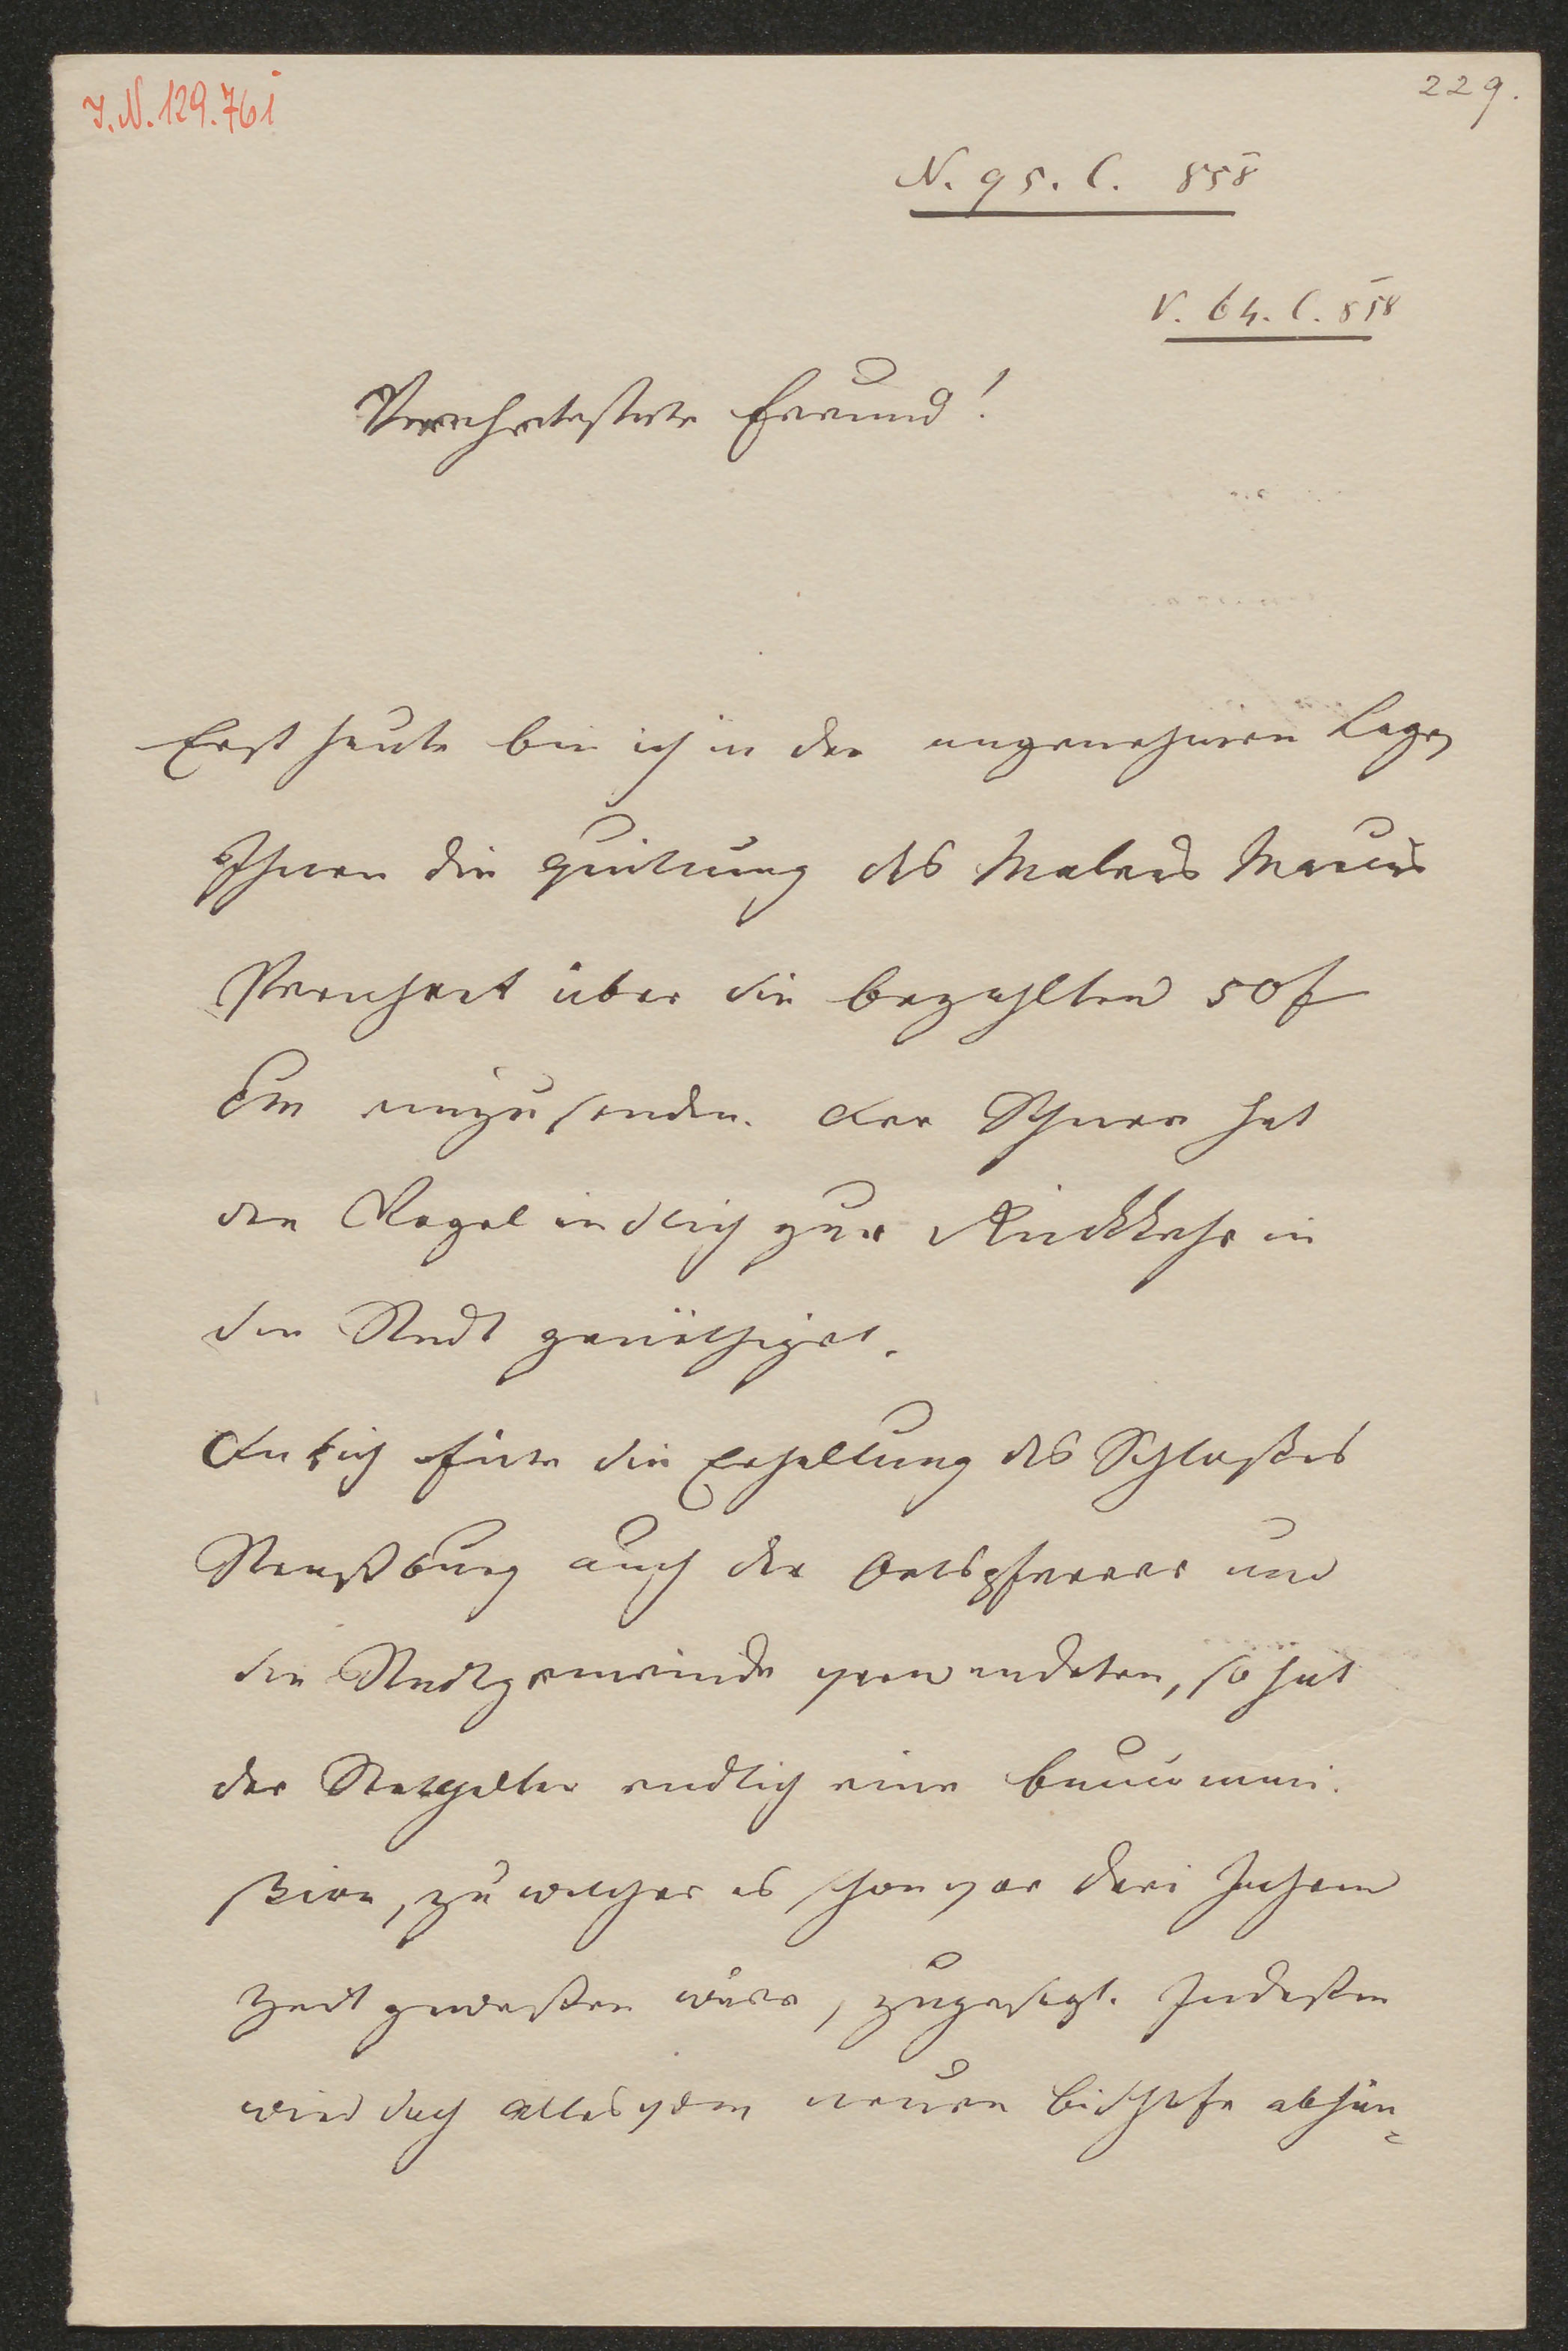 I.N. 129.761
229.
N. 95. C. 858
V. 64. C. 858
Verehrtester Freund!
Erst heute bin ich in der angenehmen Lage,
Ihnen die Quittung des Malers Markus
Pernhart über die bezahlten 50 f
Cm einzusenden. Der Schnee hat
den Vogel endlich zur Rückkehr in
die Stadt genöthiget.
Da sich für die Erhaltung des Schloßes
Straßburg auch der Ortspfarrer und
die Stadtgemeinde verwendeten, so hat
der Statthalter endlich eine Baucommi-
ßion, zu welcher es schon vor drei Jahren
Zeit gewesen wäre, zugesagt. Indeßen
wird doch alles vom neuen Bischofe abhän-